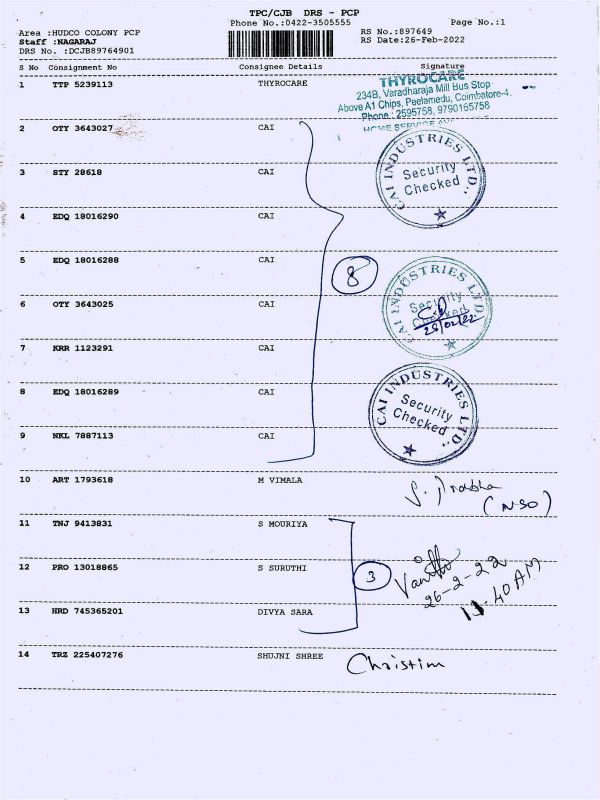 TPC/CJB DRS - PCP
Phone No.:0422-3505555
Page No.:1
Area :HUDCO COLONY PCP
RS No.:897649
Staff :NAGARAJ
RS Date:26-Feb-2022
DRS No. :DCJB89764901
S No Consignment No Consignee Details Signature
1 TTP 5239113 THYROCARE
THYROCARE
234B, Varadharaja Mill Bus Stop
Above A1 Chips, Peelamedu, Coimbatore-4.
Phone : 2595758, 9790165758
HOME SERVICE
2 OTY 3643027 CAI
CAI INDUSTRIES LTD.,
Security
Checked
3 STY 28618 CAI
4 EDQ 18016290 CAI
5 EDQ 18016288 CAI
8
CAI INDUSTRIES LTD
Security
Checked
26/02/22
6 OTY 3643025 CAI
7 KRR 1123291 CAI
8 EDQ 18016289 CAI
CAI INDUSTRIES LTD.,
Security
Checked
9 NKL 7887113 CAI
10 ART 1793618 M VIMALA
S. Prabha
(NSO)
11 TNJ 9413831 S MOURIYA
12 PRO 13018865 S SURUTHI
3
26-2-22
11-40 AM
13 HRD 745365201 DIVYA SARA
14 TRZ 225407276 SHUJNI SHREE